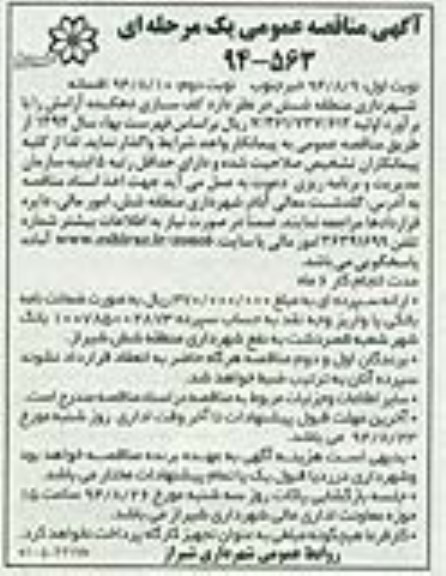 آگهی مناقصه عمومی یک مرحله ای
۹۴-۵۶۳
نوبت اول: ۹۴/۸/۹ خبر جنوب نوبت دوم: ۹۴/۸/۱۰ افسانه
شهرداری منطقه شش در نظر دارد کف سازی دهکده آرامش را با
برآورد اولیه ۷/۳۶۱/۷۳۷/۶۱۴ ریال بر اساس فهرست بهاء سال ۱۳۹۴ از
طریق مناقصه عمومی به پیمانکار واجد شرایط واگذار نماید. لذا از کلیه
پیمانکاران تشخیص صلاحیت شده و دارای حداقل رتبه ۵ ابنیه سازمان
مدیریت و برنامه ریزی دعوت به عمل می آید جهت اخذ اسناد مناقصه
به آدرس: گلدشت معالی آباد، شهرداری منطقه شش، امور مالی، دایره
قراردادها مراجعه نمایند. ضمناً در صورت نیاز به اطلاعات بیشتر شماره
تلفن ۳۶۳۹۱۶۹۹ امور مالی یا سایت آماده
پاسخگویی می باشد.
مدت انجام کار ۶ ماه
• ارائه سپرده ای به مبلغ ۳۷۰/۰۰۰/۰۰۰ ریال به صورت ضمانت نامه
بانکی یا واریز وجه نقد به حساب سپرده ۱۰۰۷۸۵۰۰۲۸۷۳ بانک
شهر شعبه قصردشت به نفع شهرداری منطقه شش شیراز.
• برندگان اول و دوم مناقصه هرگاه حاضر به انعقاد قرارداد نشوند
سپرده آنان به ترتیب ضبط خواهد شد.
• سایر اطلاعات و جزئیات مربوط به مناقصه در اسناد مناقصه مندرج است.
• آخرین مهلت قبول پیشنهادات تا آخر وقت اداری روز شنبه مورخ
۹۴/۸/۲۳ می باشد.
• بدیهی است هزینه آگهی به عهده برنده مناقصه خواهد بود
وشهرداری در رد یا قبول یک یا تمام پیشنهادات مختار می باشد.
• جلسه بازگشایی پاکات روز سه شنبه مورخ ۹۴/۸/۲۶ ساعت ۱۵
حوزه معاونت اداری مالی شهرداری شیراز می باشد.
• کارفرما هیچگونه مبلغی به عنوان تجهیز کارگاه پرداخت نخواهد کرد.
روابط عمومی شهرداری شیراز